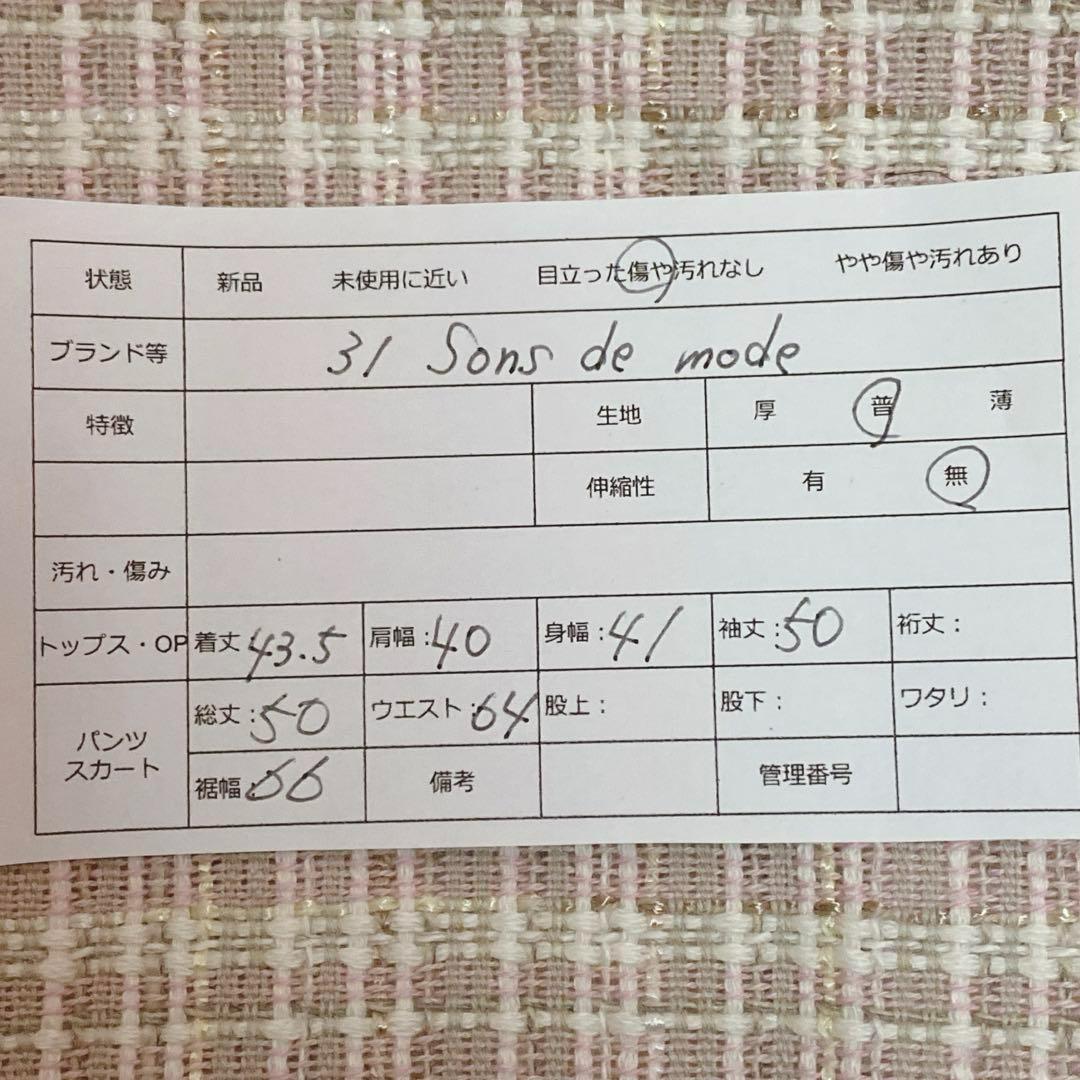 状態 新品 未使用に近い 目立った傷や汚れなし やや傷や汚れあり
ブランド等 31 Sons de mode
特徴 生地 厚 普 薄
伸縮性 有 無
汚れ・傷み
トップス・OP 着丈 43.5 肩幅:40 身幅:41 袖丈:50 裄丈:
パンツ スカート 総丈:50 ウエスト:64 股上: 股下: ワタリ:
裾幅:66 備考 管理番号